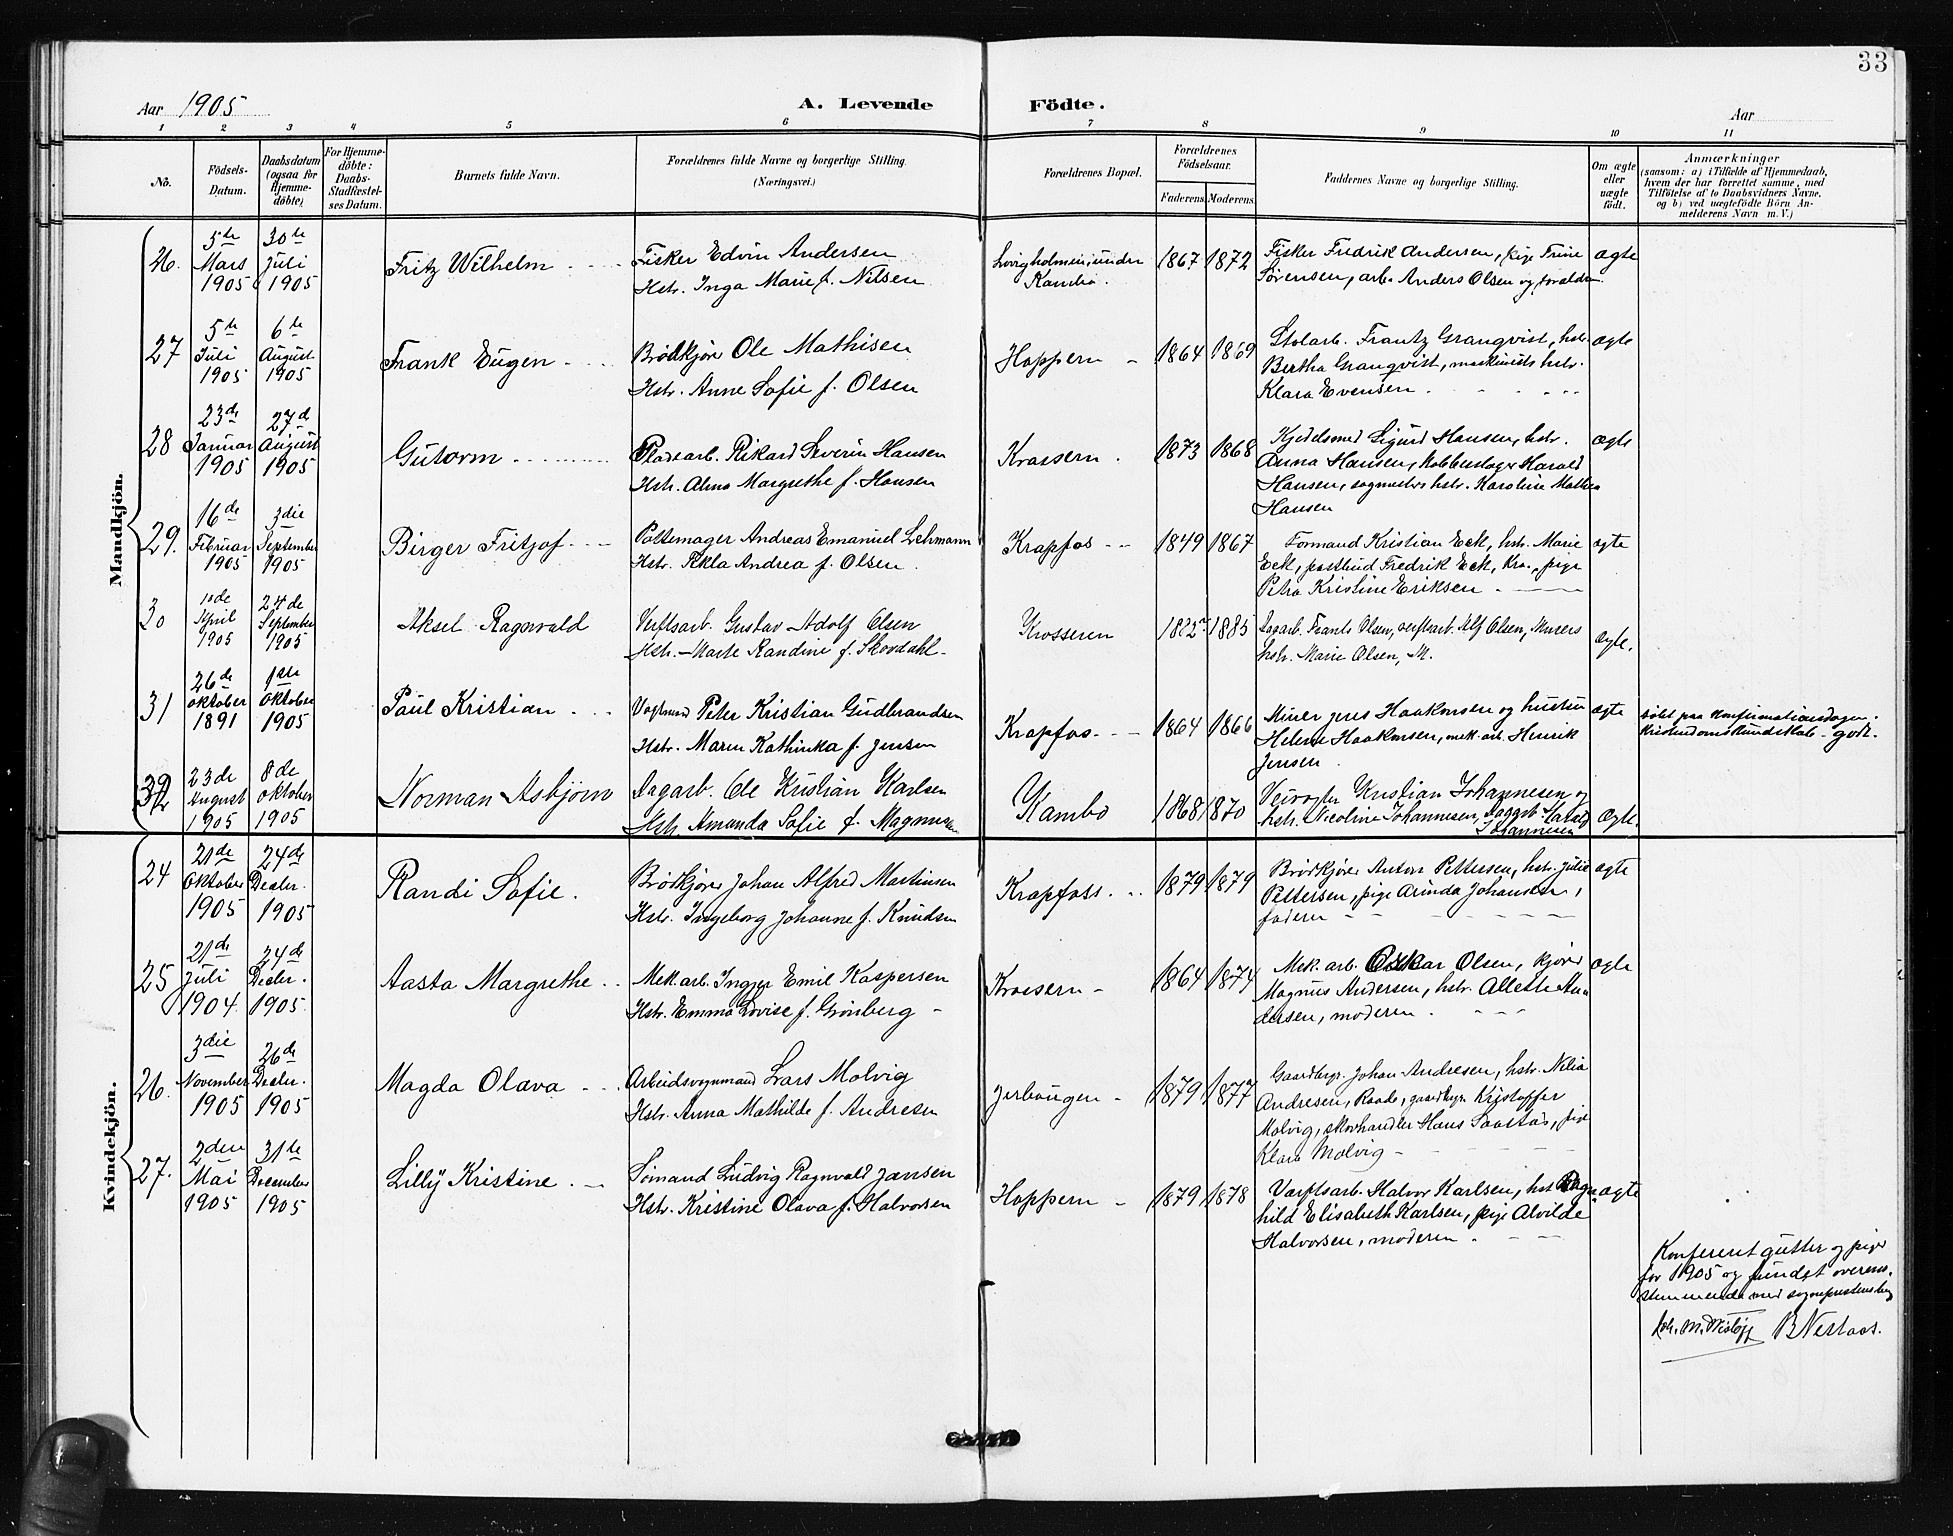 33
Aar 1905 A. Levende Födte. Aar
1 2 3 4 5 6 7 8 9 10 11
No.
Födsels-Datum.
Daabsdatum (ogsaa for Hjemme-döbte)
For Hjemme-döbte: Daabs-Stadfæstel-ses Datum.
Barnets fulde Navn.
Forældrenes fulde Navne og borgerlige Stilling.
(Næringsvei.)
Forældrenes Bopæl.
Forældrenes Födselsaar.
Faderens Moderens
Faddernes Navne og borgerlige Stilling.
Om ægte eller uægte födt.
Anmærkninger
(saasom: a) i Tilfælde af Hjemmedaab,
hvem der har forrettet samme, med
Tilföielse af to Daabsvidners Navne.
og b) ved uægtefödte Börn An-
melderens Navn m. V.)
Mandkjön.
26. 5te Mars 1905 30te Juli 1905 Fritz Wilhelm Fisker Edvin Andersen
Hstr. Inga Marie f. Nilsen
under Kambo. 1867 1872 Fisker Fredrik Andersen, pige Trine
Sørensen, arb. Anders Olsen og forældre. ægte
27 5te Juli 1905 6te August 1905 Frank Eugen Brödkjörer Ole Mathisen
Hstr. Anne Sofie f. Olsen
Hoppern 1864 1869 Stolarb. Frantz Granqvist, hstr.
Bertha Granqvist, maskinists hstr.
Klara Evensen ægte
28 23de Januar 1905 27de August 1905 Gutorm Pladearb. Rikard Severin Hansen
Hstr. Alma Margrethe f. Hansen
Krossern. 1873 1868 Kjedelsmed Sigurd Hansen, hstr.
Anna Hansen, Kobberslager Harald
Hansen, sagmesters hstr. Karoline Mathea
Hansen ægte
29. 16de Februar 1905 3die September 1905 Birger Fritjof Pottemager Andreas Emanuel Lehmann
Hstr. Tekla Andrea f. Olsen.
Krapfos 1849 1867 Formand Kristian Eck, hstr. Marie
Eck, postbud Fredrik Eck, Kra., pige
Petra Kristine Eriksen ægte
30 10de April 1905 24de September 1905 Aksel Ragnvald Verftsarb. Gustav Adolf Olsen
Hstr. Marte Randine f. Skovdahl
Krosseren 1882 1885 Dagarb. Frants Olsen, verftsarb. Alf Olsen, Murers
hstr. Marie Olsen, M. ægte.
31 26de Oktober 1891 1ste Oktober 1905 Paul Kristian Vogtmand Peter Kristian Gudbrandsen
Hstr. Maren Kathinka f. Jensen
Krapfos. 1864 1866 Murer Jens Haakonsen og hustru
Helene Haakonsen, mek. arb. Henrik
Jensen ægte Döbt paa Konfirmationsdagen.
Kristendomskundskab - godt.
32 23de August 1905 8de Oktober 1905 Norman Asbjörn Dagarb. Ole Kristian Karlsen
Hstr. Amanda Sofie f. Magnussen
Kambo 1868 1870 Veivogter Kristian Johannesen og
hstr. Nicoline Johannesen, Dagarb. Harald
Johannesen Ægte.
Kvindekjön.
24 21de Oktober 1905 24de Decbr. 1905 Randi Sofie. Brödkjörer Johan Alfred Martinsen
Hstr. Ingeborg Johanne f. Knudsen
Krapfoss. 1879 1879 Brödkjörer Anton Pettersen, hstr. Julie
Pettersen, pige Arinda Johansen,
faderen ægte
25 21de Juli 1904. 24de Decbr. 1905. Aasta Margrethe Mek. arb. Ingjer Emil Kaspersen
Hstr. Emma Lovise f. Grönberg
Krossern 1864 1874 Mek. arb. Oskar Olsen, kjörer
Magnus Andersen, hstr. Allette An-
dersen, moderen. ægte
26. 3die November 1905 26de Decbr. 1905 Magda Olava Arbeidsvognmand Lars Molvig
Hstr. Anna Mathilde f. Andresen
Jerbaugen 1879 1877 Gaardbrgr. Johan Andresen, hstr. Nilia
Andresen, Raade, gaardbrgr Kristoffer
Molvig, skovhandler Hans Saastad, pige
Klara Molvig
27. 2den Mai 1905 31te December 1905 Lilly Kristine Sömand Ludvig Ragnvald Jansen
Hstr. Kristine Olava f. Halvorsen
Hoppern 1879 1878 Værftsarb. Halvor Karlsen, hstr. Ragn-
hild Elisabeth Karlsen, pige Alvilde
Halvorsen, moderen. ægte
Konferent gutter og piger
for 1905 og fundet overens-
stemmende med sogneprestens bog
B Nestaas.